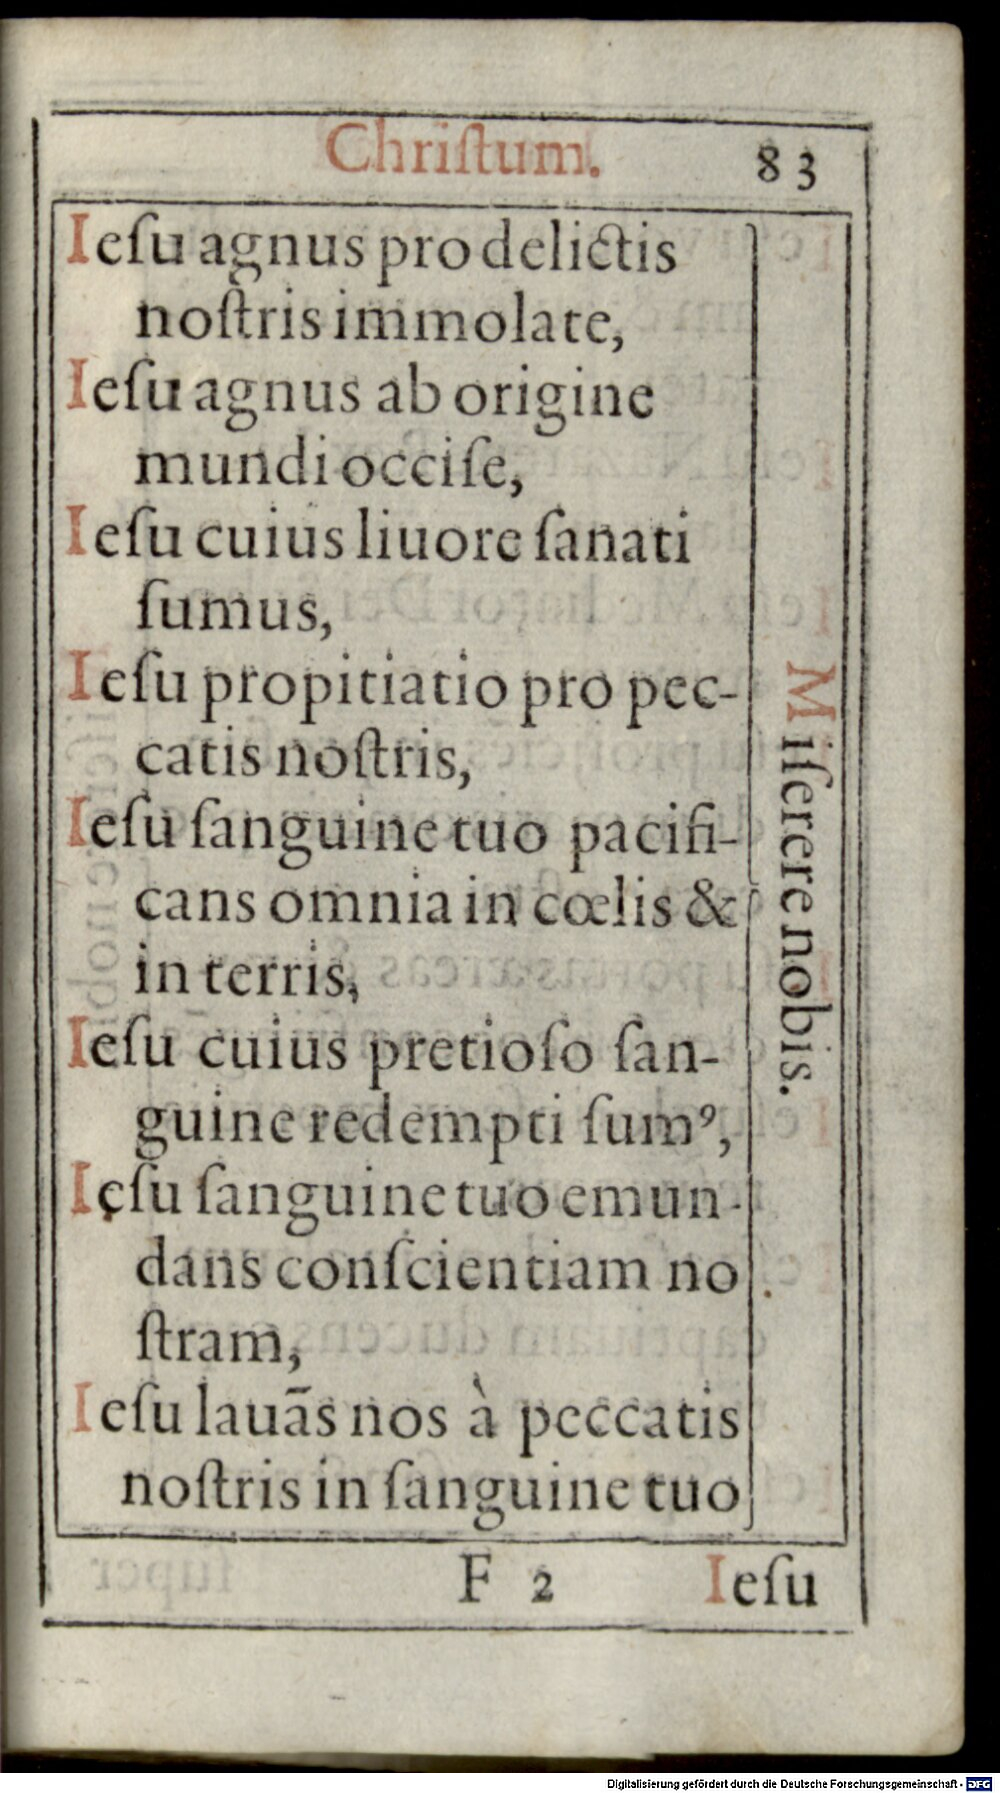 Chriſtum. 83
Ieſu agnus pro delictis
noſtris immolate,
Ieſu agnus ab origine
mundi occiſe,
Ieſu cuius liuore ſanati
ſumus,
Ieſu propitiatio pro pec-
catis noſtris,
Ieſu ſanguine tuo pacifi-
cans omnia in cœlis &
in terris,
Ieſu cuius pretioſo ſan-
guine redempti ſumꝰ,
Ięſu ſanguine tuo emun-
dans conſcientiam no
ſtram,
Ieſu lauãs nos à peccatis
noſtris in ſanguine tuo
Miſerere nobis.
F 2 Ieſu
Digitalisierung gefördert durch die Deutsche Forschungsgemeinschaft - DFG